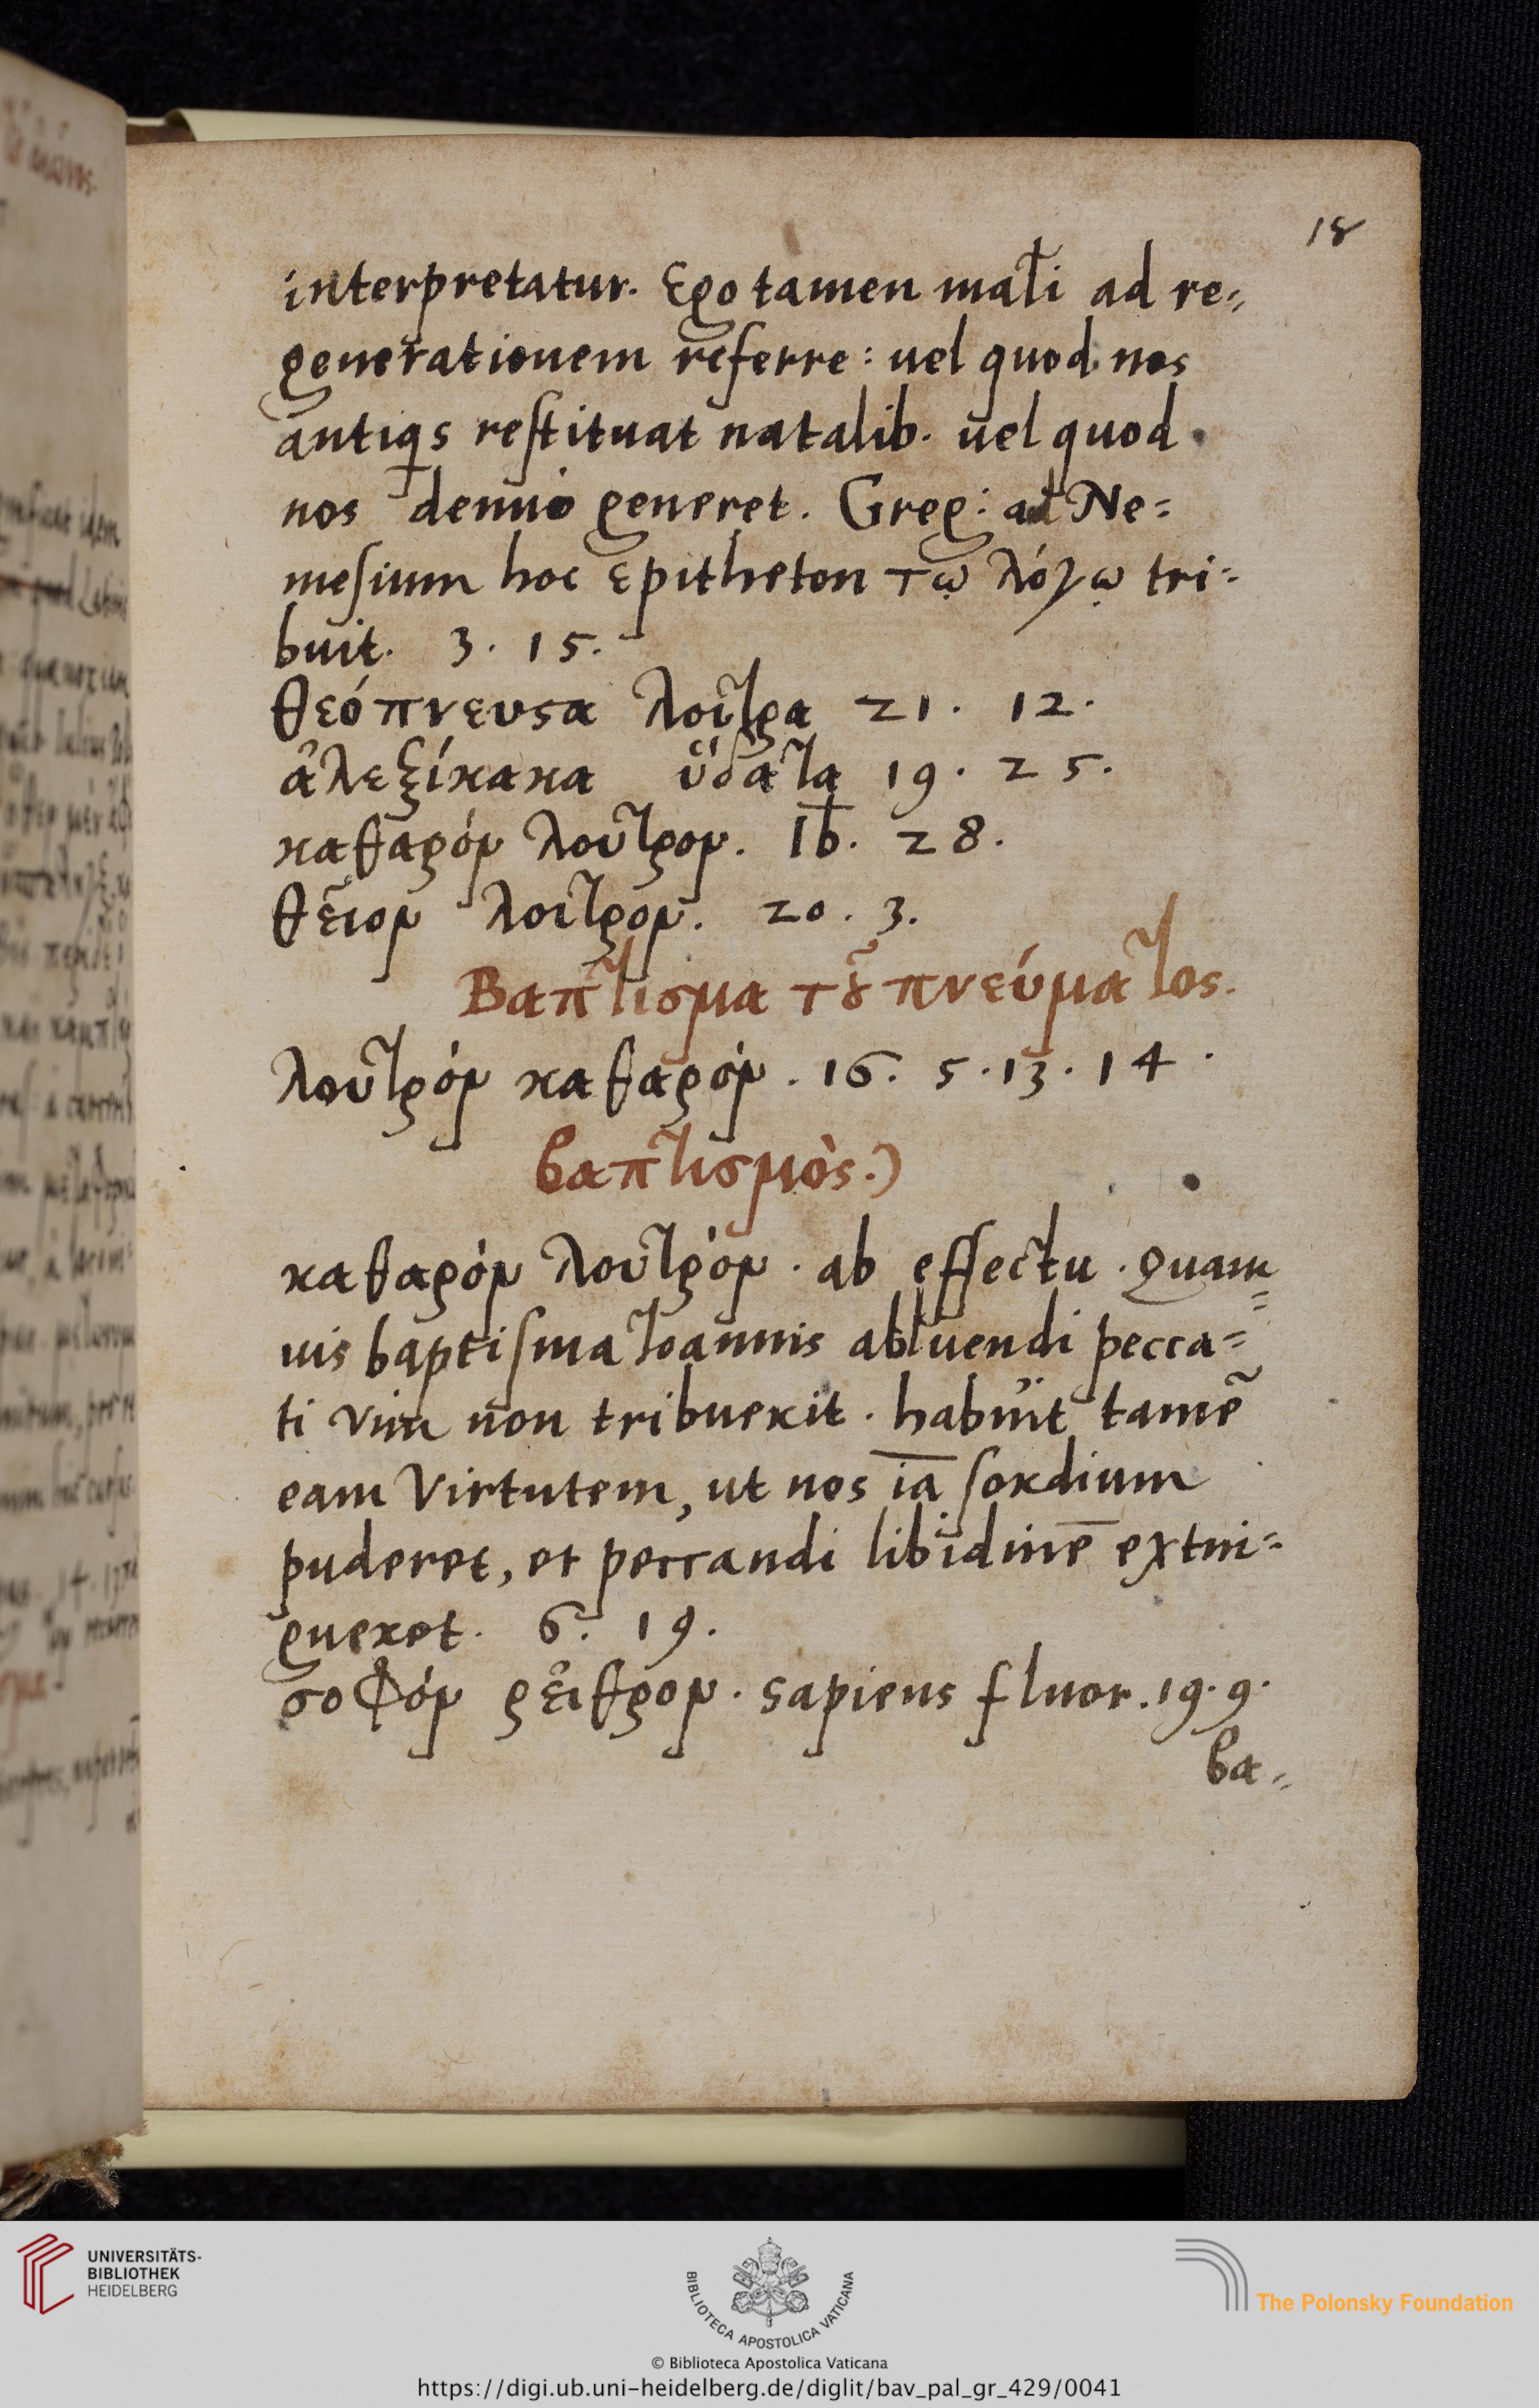 18
interpretatur. Ego tamen mali ad re-
generationem referre: uel quod nos
antiqs restituat natalib. uel quod
nos denuò generet. Greg: ad Ne=
mesium hoc epitheton τῳ λόγῳ tri-
buit. 3. 15.
θεόπνευϛα λουτρα 21. 12.
ἀλεξίκακα ὕδατα 19. 25.
καθαρόν λουτρον. Ib. 28.
θεῖον λουτρον. 20. 3.
Βαπτισμα τȣ͂ πνεύματος.
λουτρόν καθαρόν. 16. 5. 13. 14.
βαπτισμὸς.)
καθαρόν λουτρόν. ab effectu. Quam=
uis baptisma Ioannis abluendi pecca=
ti vim non tribuerit. habuit tamẽ
eam virtutem, ut nos iā sordium
puderet, et peccandi libidinē extni-
gueret. 6. 19.
σοφόν ῥεῖθρον. sapiens fluor. 19. 9.
βα-
UNIVERSITÄTS-
BIBLIOTHEK
HEIDELBERG
BIBLIOTECA APOSTOLICA VATICANA
The Polonsky Foundation
© Biblioteca Apostolica Vaticana
https://digi.ub.uni-heidelberg.de/diglit/bav_pal_gr_429/0041